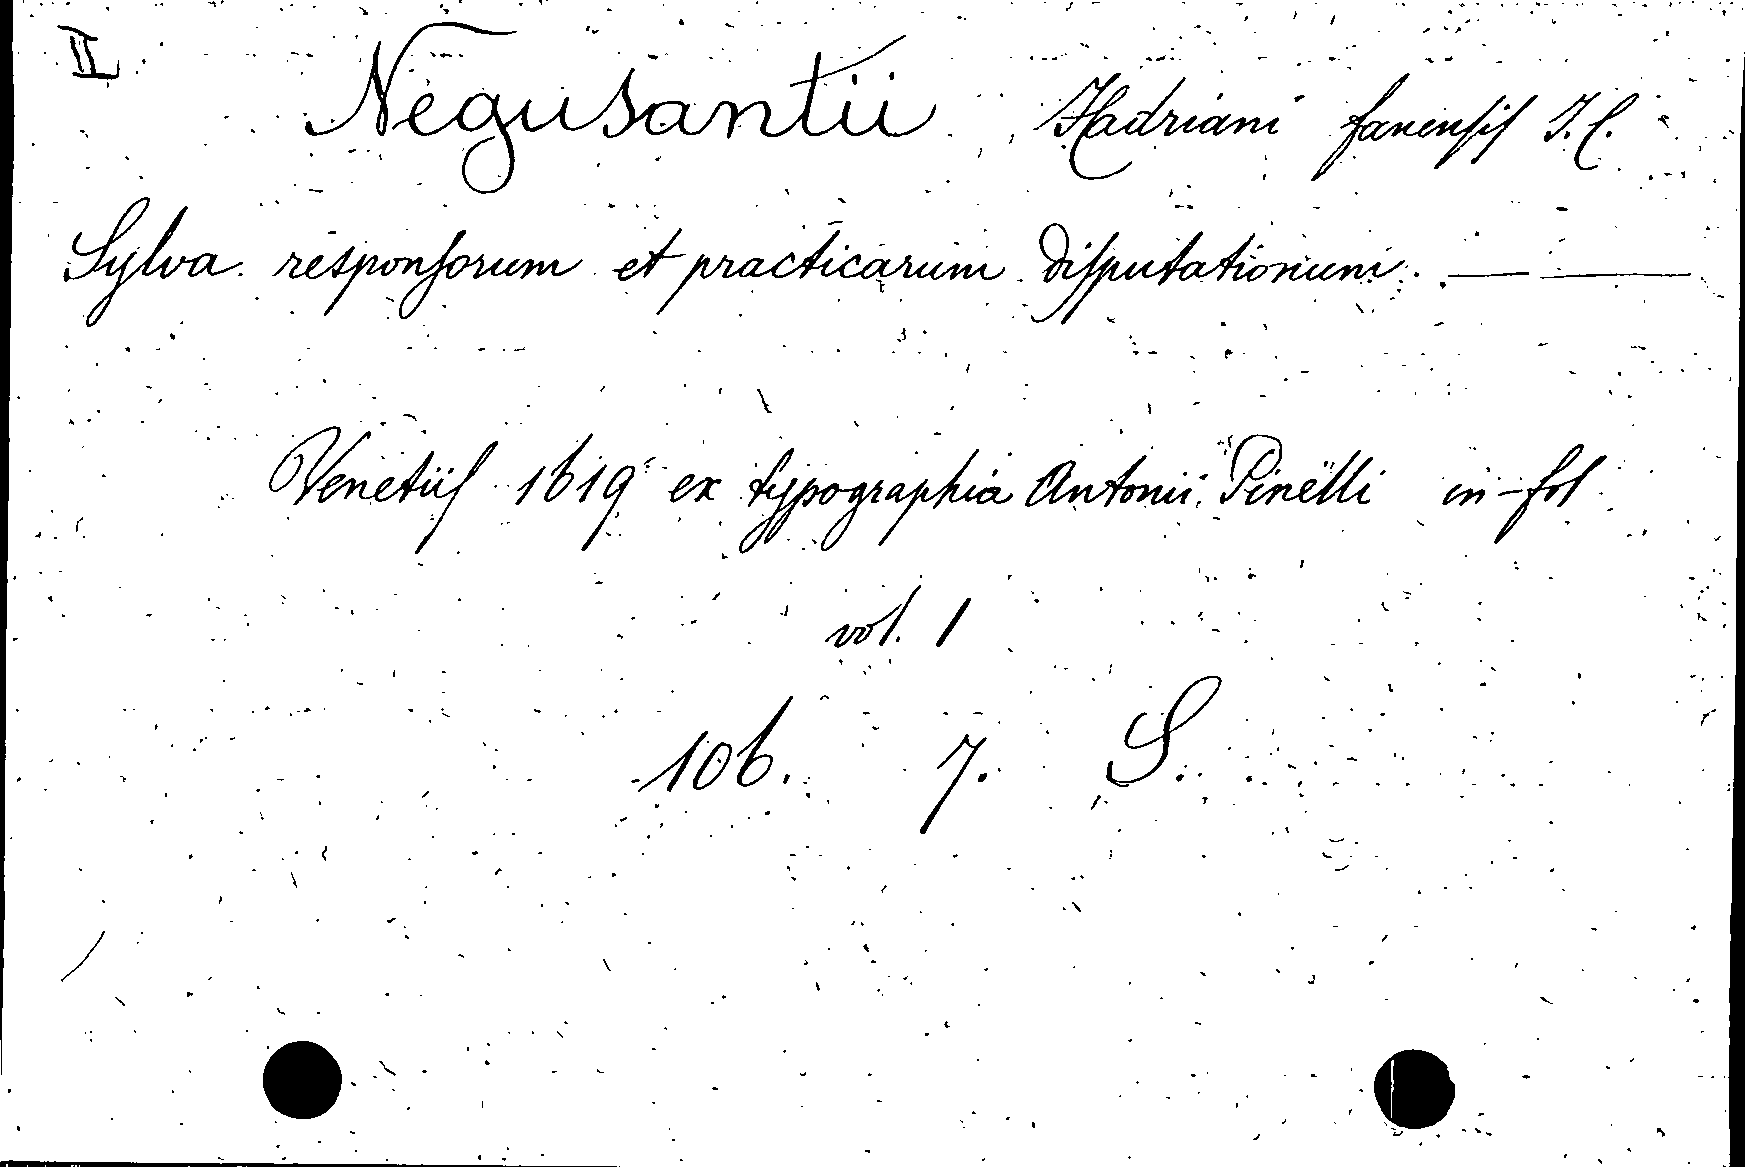 II
Negusantii Hadriani fanensis J. C.
Sylva responsorum et practicarum disputationum. — —
Venetiis 1619 ex typographia Antonii Pinelli in-fol
vol. 1
106. 7. S.